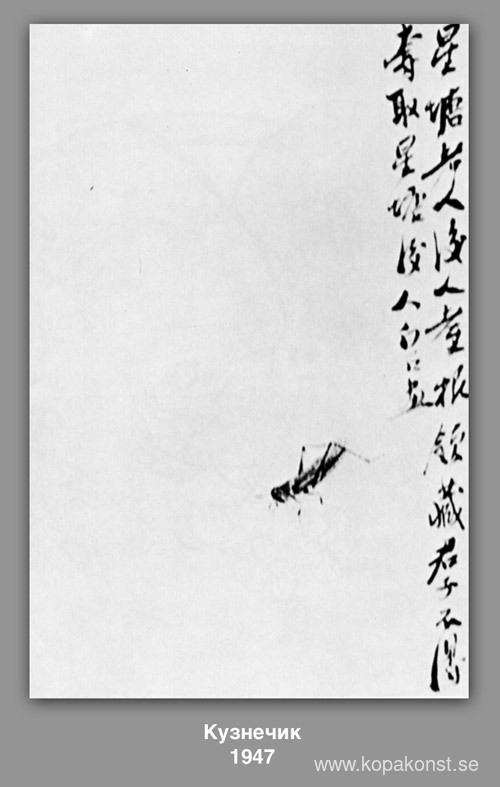 星塘老人後人產根領藏君子不得
奪取星塘後人白石畫
Кузнечик
1947
www.kopakonst.se